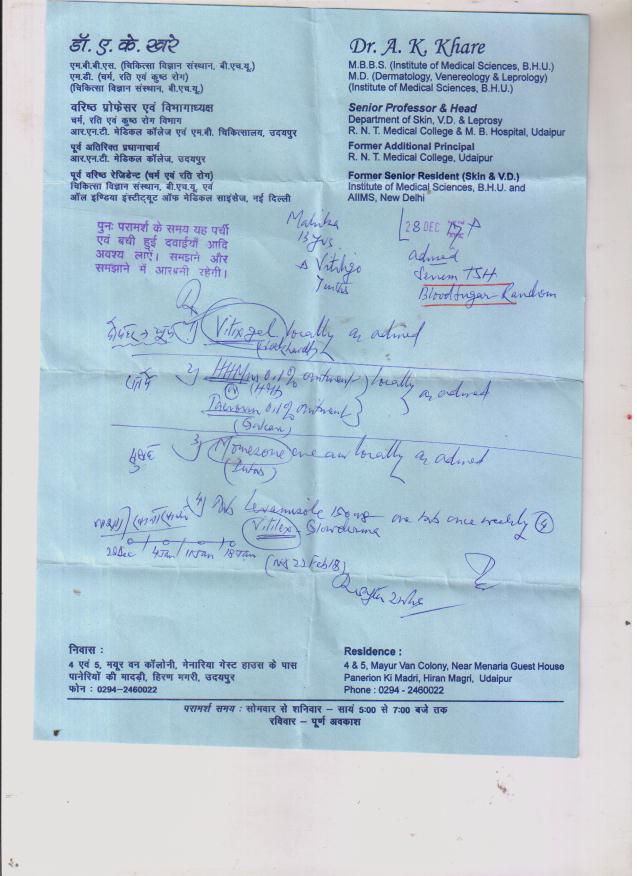 डॉ. ए. के. खरे
एम.बी.बी.एस. (चिकित्सा विज्ञान संस्थान, बी.एच.यू.)
एम.डी. (चर्म, रति एवं कुष्ठ रोग)
(चिकित्सा विज्ञान संस्थान, बी.एच.यू.)
वरिष्ठ प्रोफेसर एवं विभागाध्यक्ष
चर्म, रति एवं कुष्ठ रोग विभाग
आर.एन.टी. मेडिकल कॉलेज एवं एम.बी. चिकित्सालय, उदयपुर
पूर्व अतिरिक्त प्रधानाचार्य
आर.एन.टी. मेडिकल कॉलेज, उदयपुर
पूर्व वरिष्ठ रेजिडेन्ट (चर्म एवं रति रोग)
चिकित्सा विज्ञान संस्थान, बी.एच.यू. एवं
ऑल इण्डिया इंस्टीट्यूट ऑफ मेडिकल साइंसेज, नई दिल्ली
Dr. A. K. Khare
M.B.B.S. (Institute of Medical Sciences, B.H.U.)
M.D. (Dermatology, Venereology & Leprology)
(Institute of Medical Sciences, B.H.U.)
Senior Professor & Head
Department of Skin, V.D. & Leprosy
R. N. T. Medical College & M. B. Hospital, Udaipur
Former Additional Principal
R. N. T. Medical College, Udaipur
Former Senior Resident (Skin & V.D.)
Institute of Medical Sciences, B.H.U. and
AIIMS, New Delhi
पुनः परामर्श के समय यह पर्ची
एवं बची हुई दवाईयाँ आदि
अवश्य लाऐं। समझने और
समझाने में आसानी रहेगी।
13 yrs
Vitiligo
28 DEC
advised
Serum TSH
Blood Sugar - Random
1) Vitix gel locally as advised
2) 0.1% ointment locally
as advised
0.1% ointment
3) Momesone cream locally as advised
4) Tab Levamisole 150mg - one tab once weekly (4)
Vitilex
28 Dec 4 Jan 11 Jan 18 Jan
(22 Feb 18)
निवास :
4 एवं 5, मयूर वन कॉलोनी, मेनारिया गेस्ट हाउस के पास
पानेरियों की मादड़ी, हिरण मगरी, उदयपुर
फोन : 0294-2460022
Residence :
4 & 5, Mayur Van Colony, Near Menaria Guest House
Panerion Ki Madri, Hiran Magri, Udaipur
Phone : 0294 - 2460022
परामर्श समय : सोमवार से शनिवार - सायं 5:00 से 7:00 बजे तक
रविवार - पूर्ण अवकाश